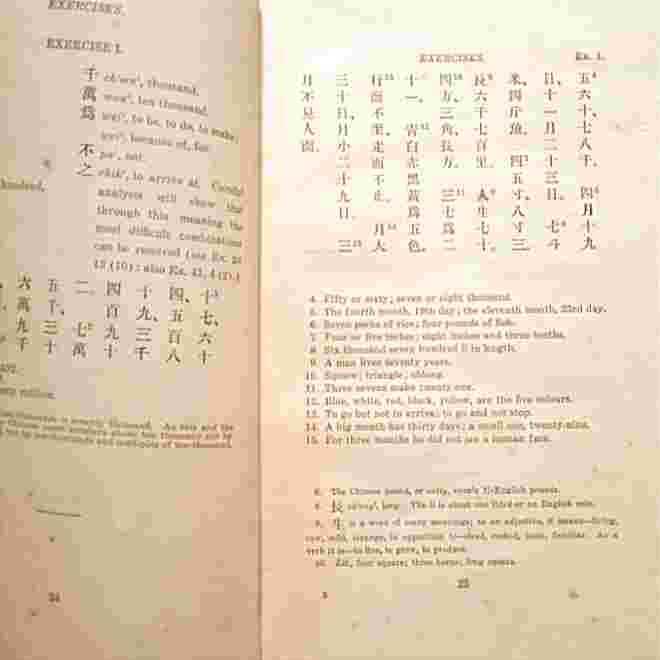 EXERCISES.
EXERCISE I.
千 ch'ien¹, thousand.
萬 wan⁴, ten thousand.
爲 wei², to be, to do, to make;
wei⁴, because of, for.
不 pu⁴, not.
之 chih¹, to arrive at. Careful
analysis will show that
through this meaning the
most difficult combinations
can be resolved
hundred.
十³七、六十
四、五百八十
十九、三千
四百九十
二、七²萬
五千、三十
六萬九千
34
EXERCISES. Ex. 1.
五⁴六十、七八千、四⁵月十九
日、十一月二十三日、七⁶斗
米、四斤魚、四⁷五寸、八寸三
長⁸六千七百里、人⁹生七十
四¹⁰方、三角、長方、三¹¹七二十
一、青¹²白赤黑黃爲五色、
行¹³而不至、走而不止、月¹⁴大
三十日、月小二十九日、三¹⁵
月不見人面
4. Fifty or sixty; seven or eight thousand.
5. The fourth month, 19th day; the eleventh month, 23rd day.
6. Seven pecks of rice; four pounds of fish.
7. Four or five inches; eight inches and three tenths.
8. Six thousand seven hundred li in length.
9. A man lives seventy years.
10. Square; triangle; oblong.
11. Three sevens make twenty one.
12. Blue, white, red, black, yellow, are the five colours.
13. To go but not to arrive; to go and not stop.
14. A big month has thirty days; a small one, twenty-nine.
15. For three months he did not see a human face.
6. The Chinese pound, or catty, equals 1⅓ English pounds.
8. 長 ch'ang², long. The li is about one third of an English mile.
9. 生 is a word of many meanings; as an adjective, it means—living,
raw, wild, strange, in opposition to—dead, cooked, tame, familiar. As a
verb it is—to live, to grow, to produce.
10. Lit., four square; three horns; long square.